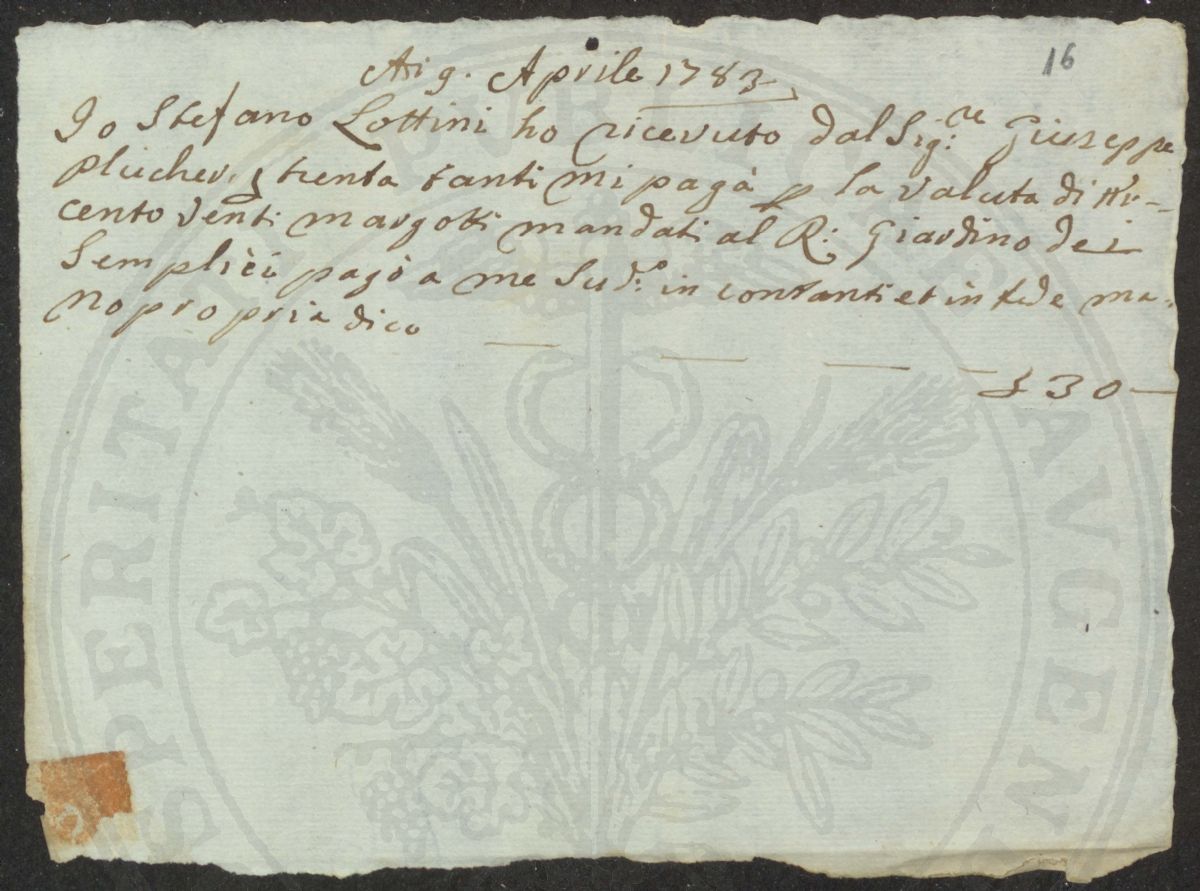 16
Adi 9. Aprile 1783
Io Stefano Lottini ho ricevuto dal Sig:re Giuseppe
plucher £ trenta tanti mi pagà p la valuta di N°
cento venti margotti mandati al R: Giardino dei
Semplici pagò a me Sud:o in contanti et in fede ma-
no propria dico
£ 30 —
PERITATI PUBLICAE AVGEN